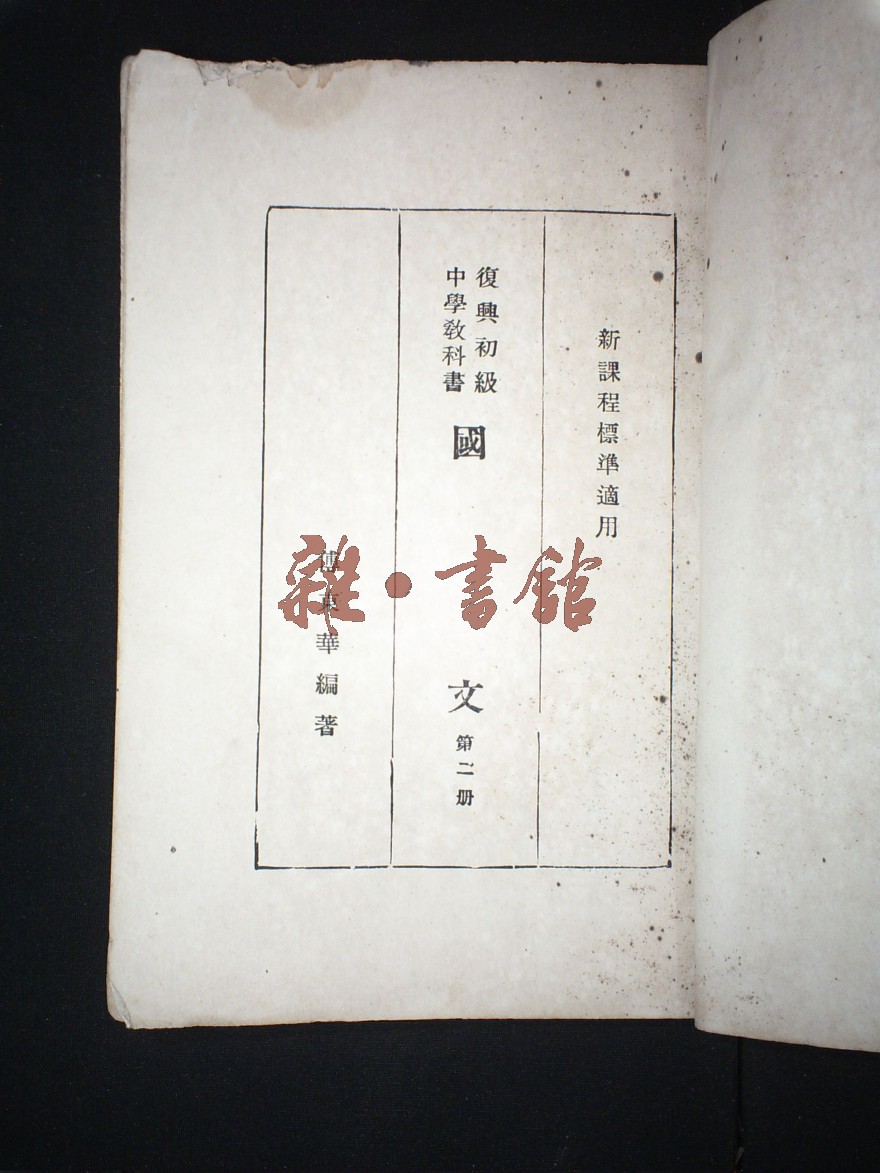 新課程標準適用
復興初級
中學教科書
國文
第二册
傅東華編著
雜·書館